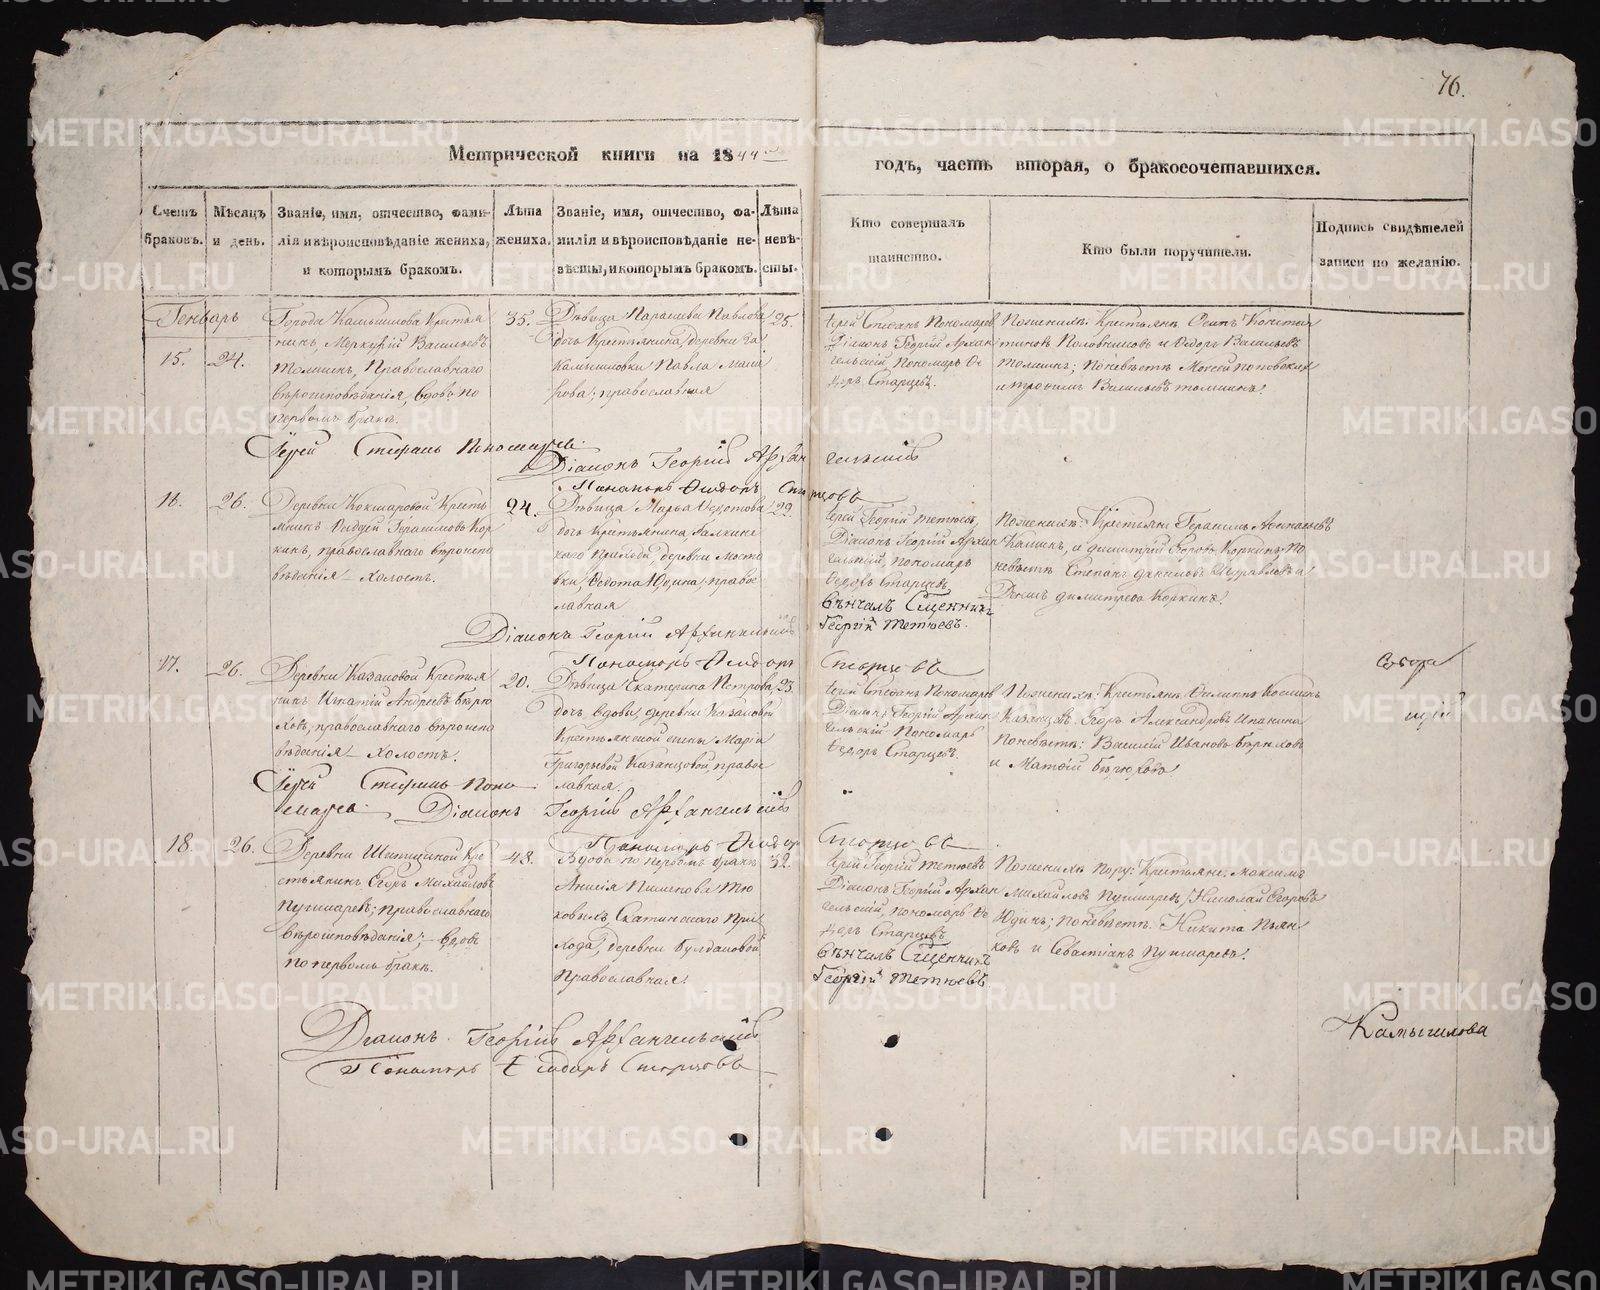 76.
Метрической книги на 1844
годъ, часть вторая, о бракосочетавшихся.
Счетъ браковъ.
Мѣсяцъ и день.
Званіе, имя, отчество, фами-
лія и вѣроисповѣданіе жениха,
и которымъ бракомъ.
Лѣта
жениха.
Званіе, имя, отчество, фа-
милія и вѣроисповѣданіе не-
вѣсты, и которымъ бракомъ.
Лѣта
невѣ-
сты.
Кто совершалъ
таинство.
Кто были поручители.
Подпись свидѣтелей
записи по желанію.
Генварь
15.
24.
Города Камышлова Крестья
нинъ, Меркурій Васильевъ
Православнаго
вѣроисповѣданія, вдовъ по
первомъ бракѣ.
35.
Дѣвица Парасцева Павлова
дочь Крестьянина деревни За
камышловки Павла
православная
25.
Іерей Стефанъ Пономарев
Діаконъ Георгій Архан
гельскій, Пономарь Ѳе
доръ Старцевъ.
Пожениху: Крестьяне Осипъ Констан
тиновъ Половниковъ и Ѳедоръ Васильевъ
Поневѣстѣ Моѵсей
Васильевъ
Іерей Стефанъ Пономаревъ.
Діаконъ Георгій Архан гельскій
Пономарь Ѳеодоръ Старцовъ
16.
26.
Деревни Кокшаровой Кресть
янинъ Герасимовъ Кор
кинъ, православнаго вѣроиспо
вѣданія – холостъ.
24.
Дѣвица Марья Ѳедотова
дочь Крестьянина Галкинс
каго прихода, деревни Мосто
вки, Ѳедота Юдина; право
славная
22.
Іерей Георгій Тетюевъ,
Діаконъ Георгій Архан
гельскій, пономарь
Ѳедоръ Старцевъ
Вѣнчалъ Сщенникъ
Георгій Тетюевъ.
Пожениху: Крестьяне Герасимъ
и Димитрій Коркинъ; По
невѣстѣ Степанъ
Димитріевъ Коркинъ.
Діаконъ Георгій Архангельскій
Пономарь Ѳеодоръ Старцовъ
17.
26.
Деревни Казаковой Крестья
нинъ Игнатій Андреевъ Бѣрю
ковъ, православнаго вѣроиспо
вѣданія – холостъ.
20.
Дѣвица Екатерина Петрова,
дочь вдовы, деревни Казаковой
Крестьянской жены Маріи
Григорьевой Казанцовой, право
славная.
23.
Іерей Стефанъ Пономарев
Діаконъ Георгій Архан
гельскій Пономарь
Ѳедоръ Старцевъ.
Пожениху: Крестьяне Филиппъ
Казанцовъ, Егоръ Александровъ
Поневѣстѣ: Василій Ивановъ Бѣрюковъ
и Матѳій Бѣрюковъ
Собора
Іерей Стефанъ Поно
маревъ. Діаконъ Георгій Архангельскій
Пономарь Ѳеодоръ Старцовъ
18.
26.
Деревни Шипициной Кре
стьянинъ Егоръ Михайловъ
Пушкаревъ; православнаго
вѣроисповѣданія; – вдовъ
по первомъ бракѣ.
48.
Вдова по первомъ бракѣ
Анисія Пименова Тю
ковыхъ, Скатинскаго При
хода, деревни Булдаковой
Православная.
32.
Іерей Георгій Тетюевъ
Діаконъ Георгій Архан
гельскій, пономарь Ѳе
доръ Старцевъ
Вѣнчалъ Сщенникъ
Георгій Тетюевъ.
Пожениху пору: Крестьяне: Максимъ
Михайловъ Пушкаревъ, Николай Егоровъ
Юдинъ; поневѣстѣ: Никита Пьян
ковъ и Севастіанъ Пушкаревъ.
Діаконъ Георгій Архангельскій
Пономарь Ѳеодоръ Старцовъ
Камышлова
METRIKI.GASO-URAL.RU